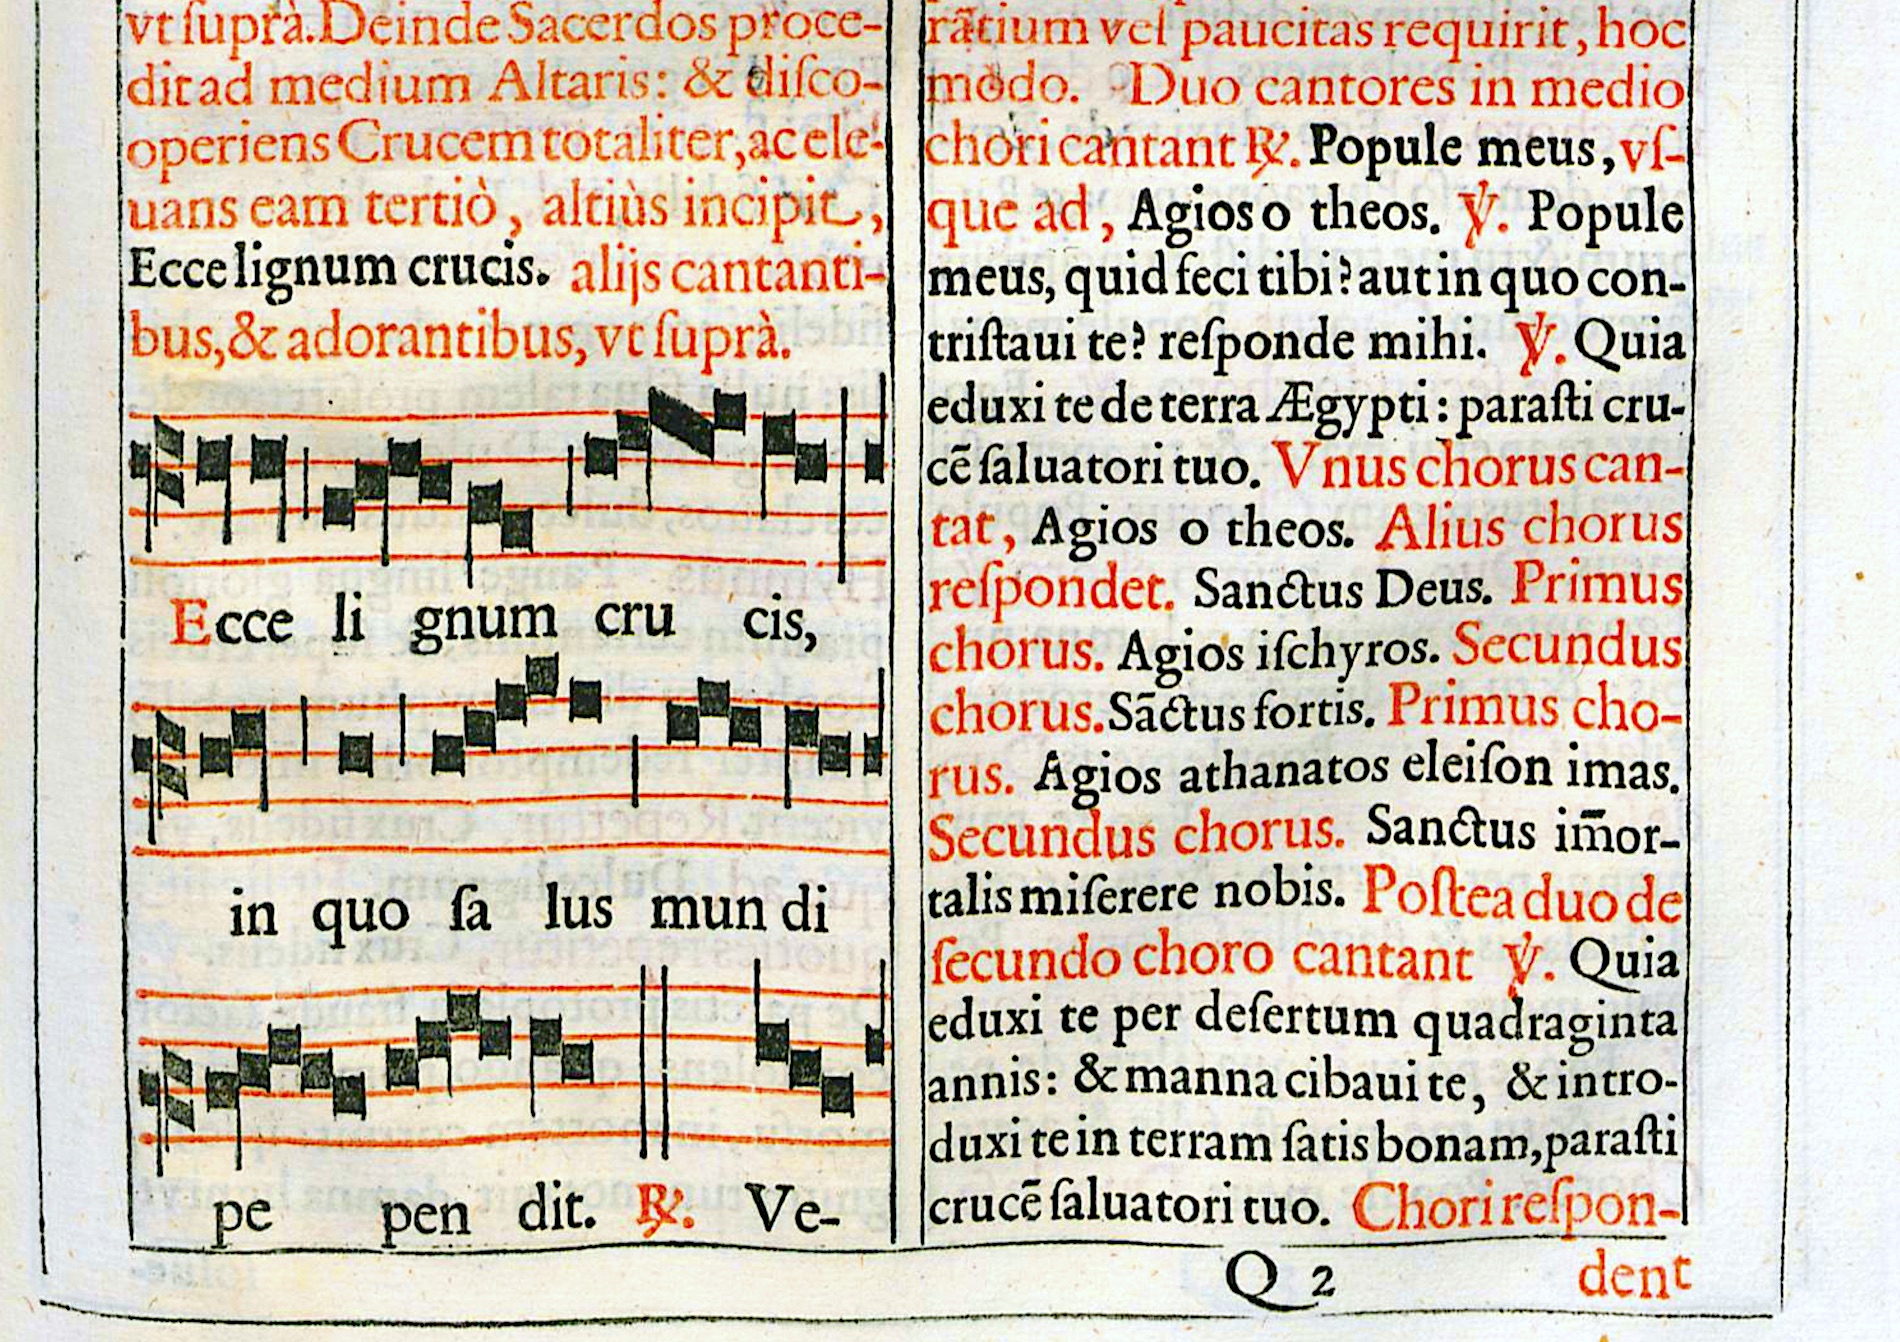 vt ſuprà. Deinde Sacerdos proce-
dit ad medium Altaris: & diſco-
operiens Crucem totaliter, ac ele-
uans eam tertiò, altiùs incipit,
Ecce lignum crucis. alijs cantanti-
bus, & adorantibus, vt ſuprà.
Ecce li gnum cru cis,
in quo ſa lus mun di
pe pen dit. ℟. Ve-
rātium vel paucitas requirit, hoc
modo. Duo cantores in medio
chori cantant ℟. Popule meus, vſ-
que ad, Agios o theos. ℣. Popule
meus, quid feci tibi? aut in quo con-
triſtaui te? reſponde mihi. ℣. Quia
eduxi te de terra Ægypti: paraſti cru-
cē ſaluatori tuo. Vnus chorus can-
tat, Agios o theos. Alius chorus
reſpondet. Sanctus Deus. Primus
chorus. Agios iſchyros. Secundus
chorus. Sāctus fortis. Primus cho-
rus. Agios athanatos eleiſon imas.
Secundus chorus. Sanctus im̄or-
talis miſerere nobis. Poſtea duo de
ſecundo choro cantant ℣. Quia
eduxi te per deſertum quadraginta
annis: & manna cibaui te, & intro-
duxi te in terram ſatis bonam, paraſti
crucē ſaluatori tuo. Chori reſpon-
Q 2 dent